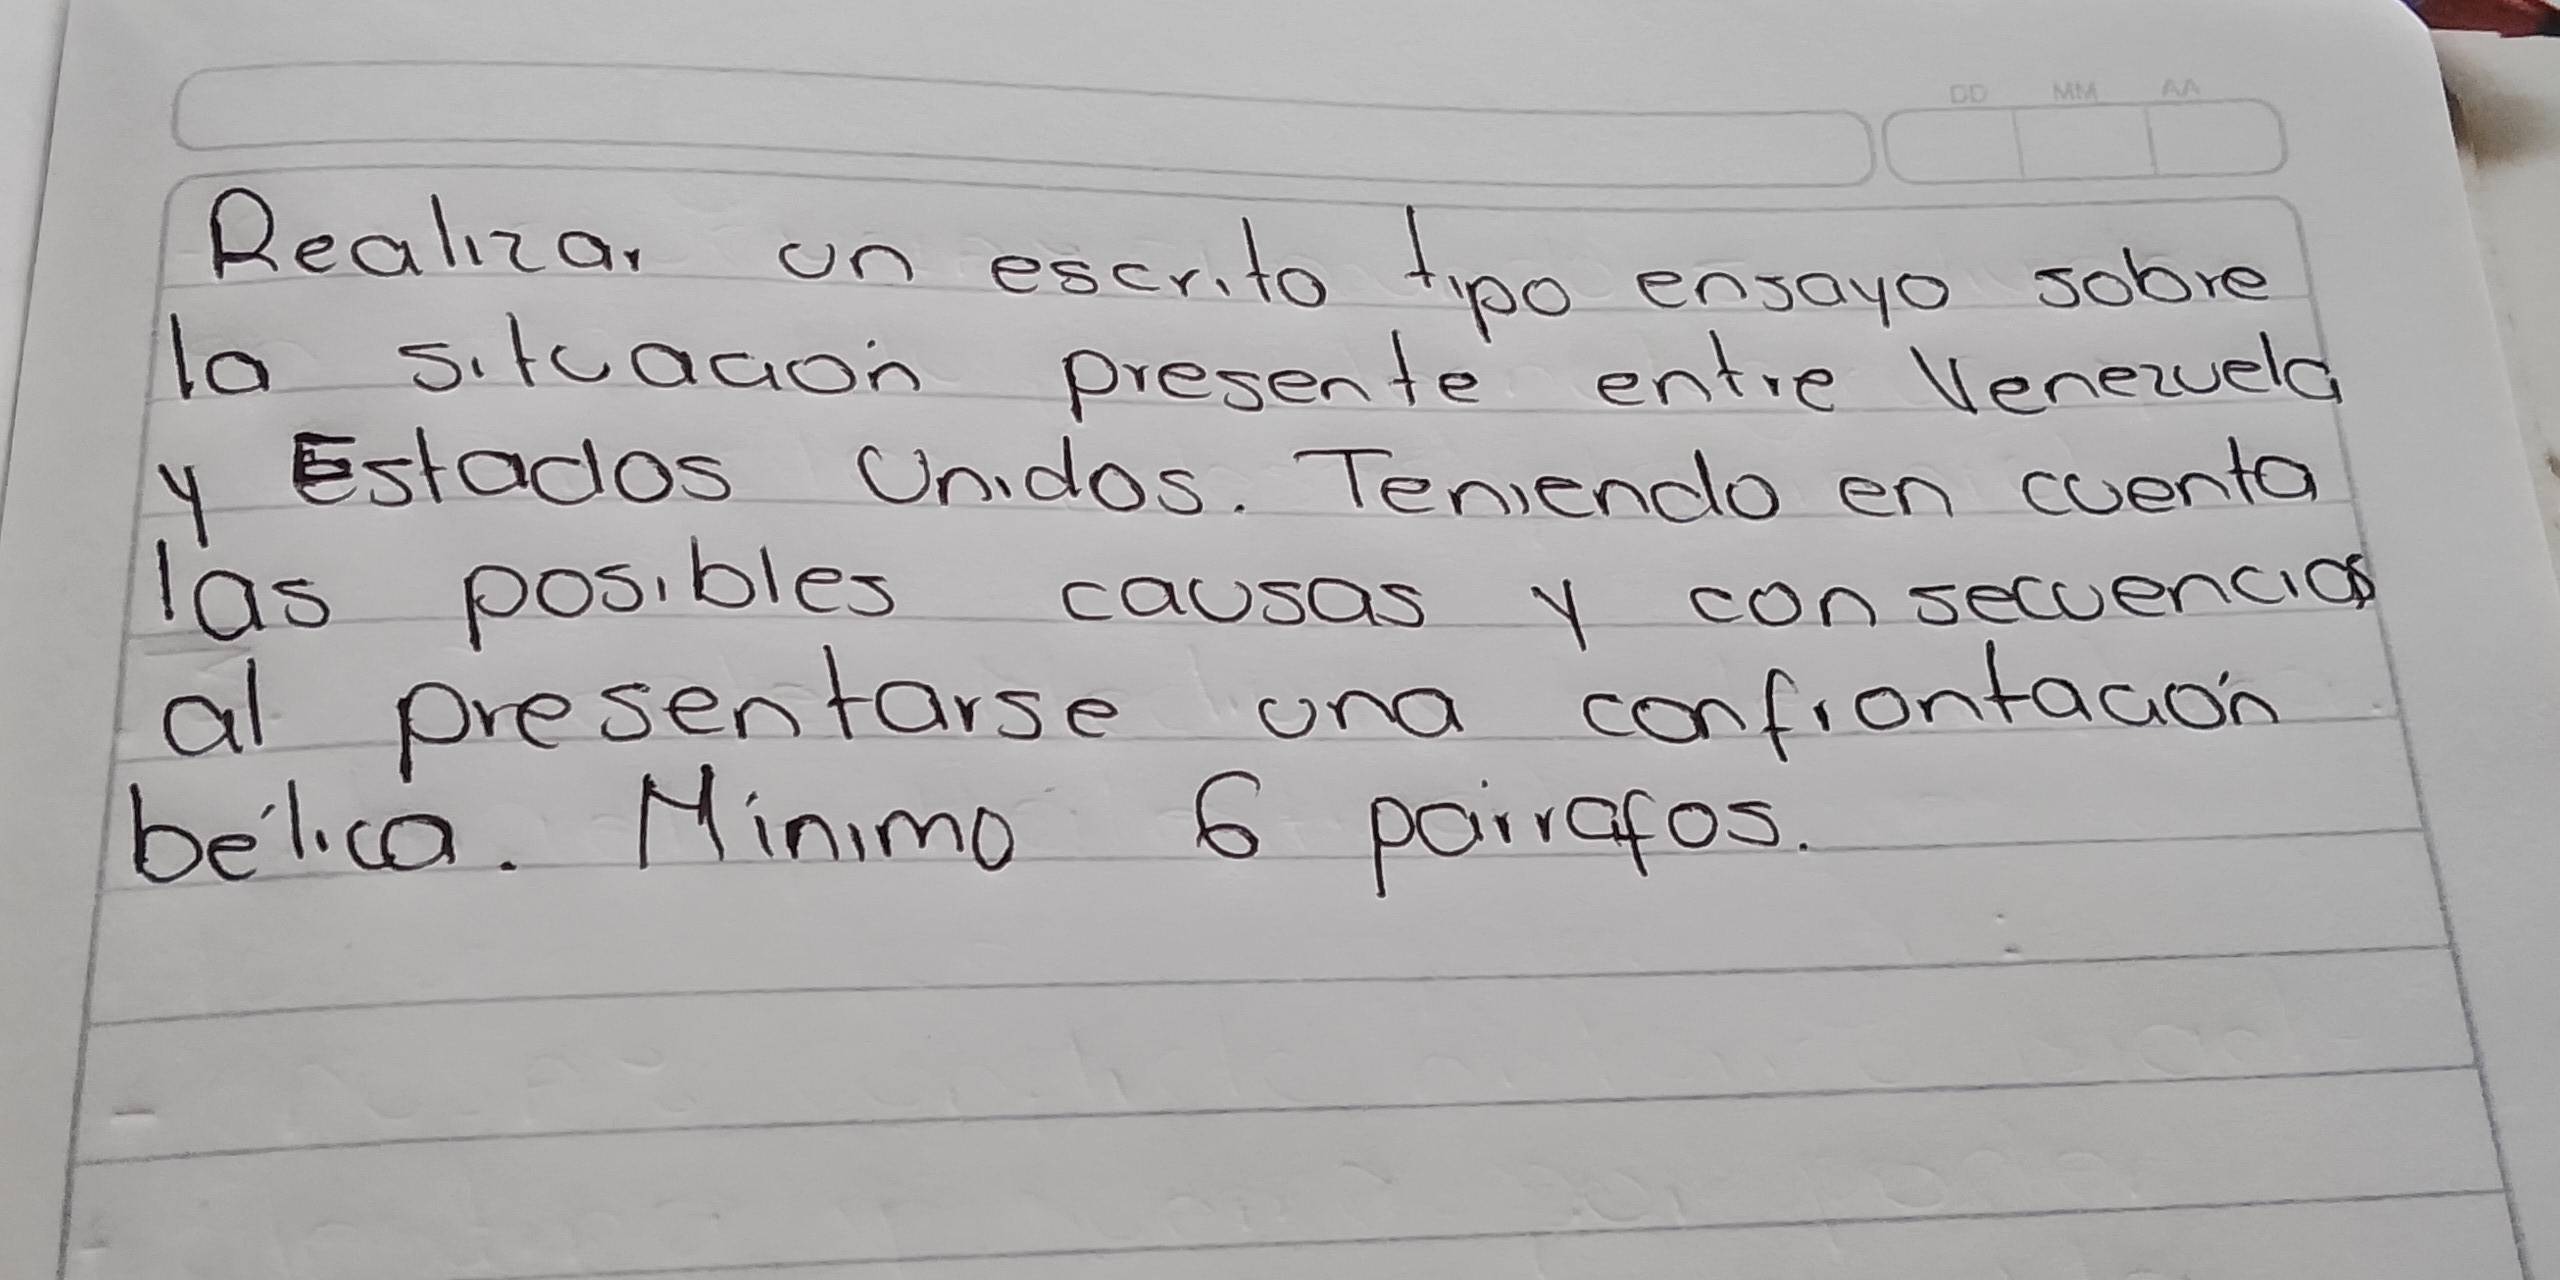 DD MM AA
Realizar un escrito tipo ensayo sobre
la situación presente entre Venezuela
y Estados Unidos. Teniendo en cuenta
las posibles causas y consecuencias
al presentarse una confrontación
bélica. Mínimo 6 párrafos.